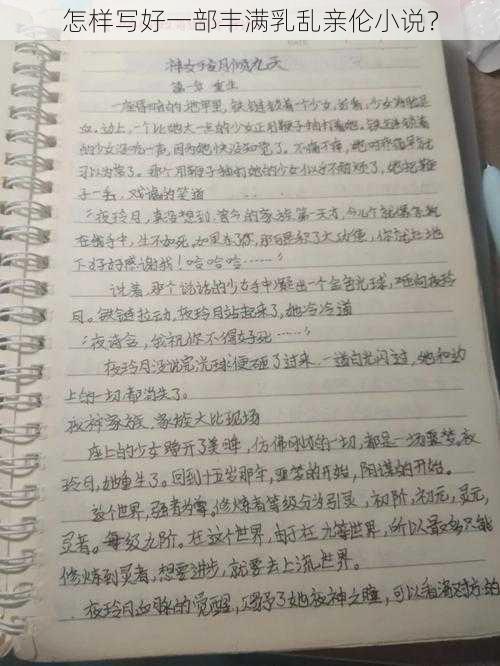 怎样写好一部丰满乳乱亲伦小说？
神女玲月倾九天
第一章 重生
一座昏暗的地牢里，铁链锁着一个少女，若看，少女浑身是
血。边上，一个比她大一点的少女正用鞭子抽打着她。铁链锁着
的少女没吭一声，因为她快没知觉了。不痛不痒，她对疼痛早就
习以为常了。那个用鞭子抽打她的少女似乎不耐烦了，她把鞭
子一丢，戏谑的笑道
“夜玲月，真没想到，当今的家族第一天才，今儿个就得落败
在我手中，生不如死。如果杀了你，那可是积了大功德，你就在地
下好好感谢我！哈哈哈……”
说着，那个说话的少女手中凝出一个金色光球，砸向夜玲
月。铁链拉动，夜玲月站起来了，她冷冷道
“夜诗会，我祝你不得好死……”
夜玲月没说完光球便砸了过来，一道白光闪过，她和边
上的一切都消失了。
夜神家族，家族大比现场
座上的少女睁开了美眸，仿佛刚刚的一切，都是一场噩梦。夜
玲月，她重生了。回到十五岁那年，噩梦的开始，阴谋的开始。
这个世界，强者为尊，修炼者等级分为引灵，初阶，初元，灵元，
灵者。每级九阶。在这个世界，由于在九等世界，所以最多只能
修炼到灵者，想要进步，就要去上流世界。
夜玲月血脉的觉醒，赐予了她夜神之瞳，可以看清对方的